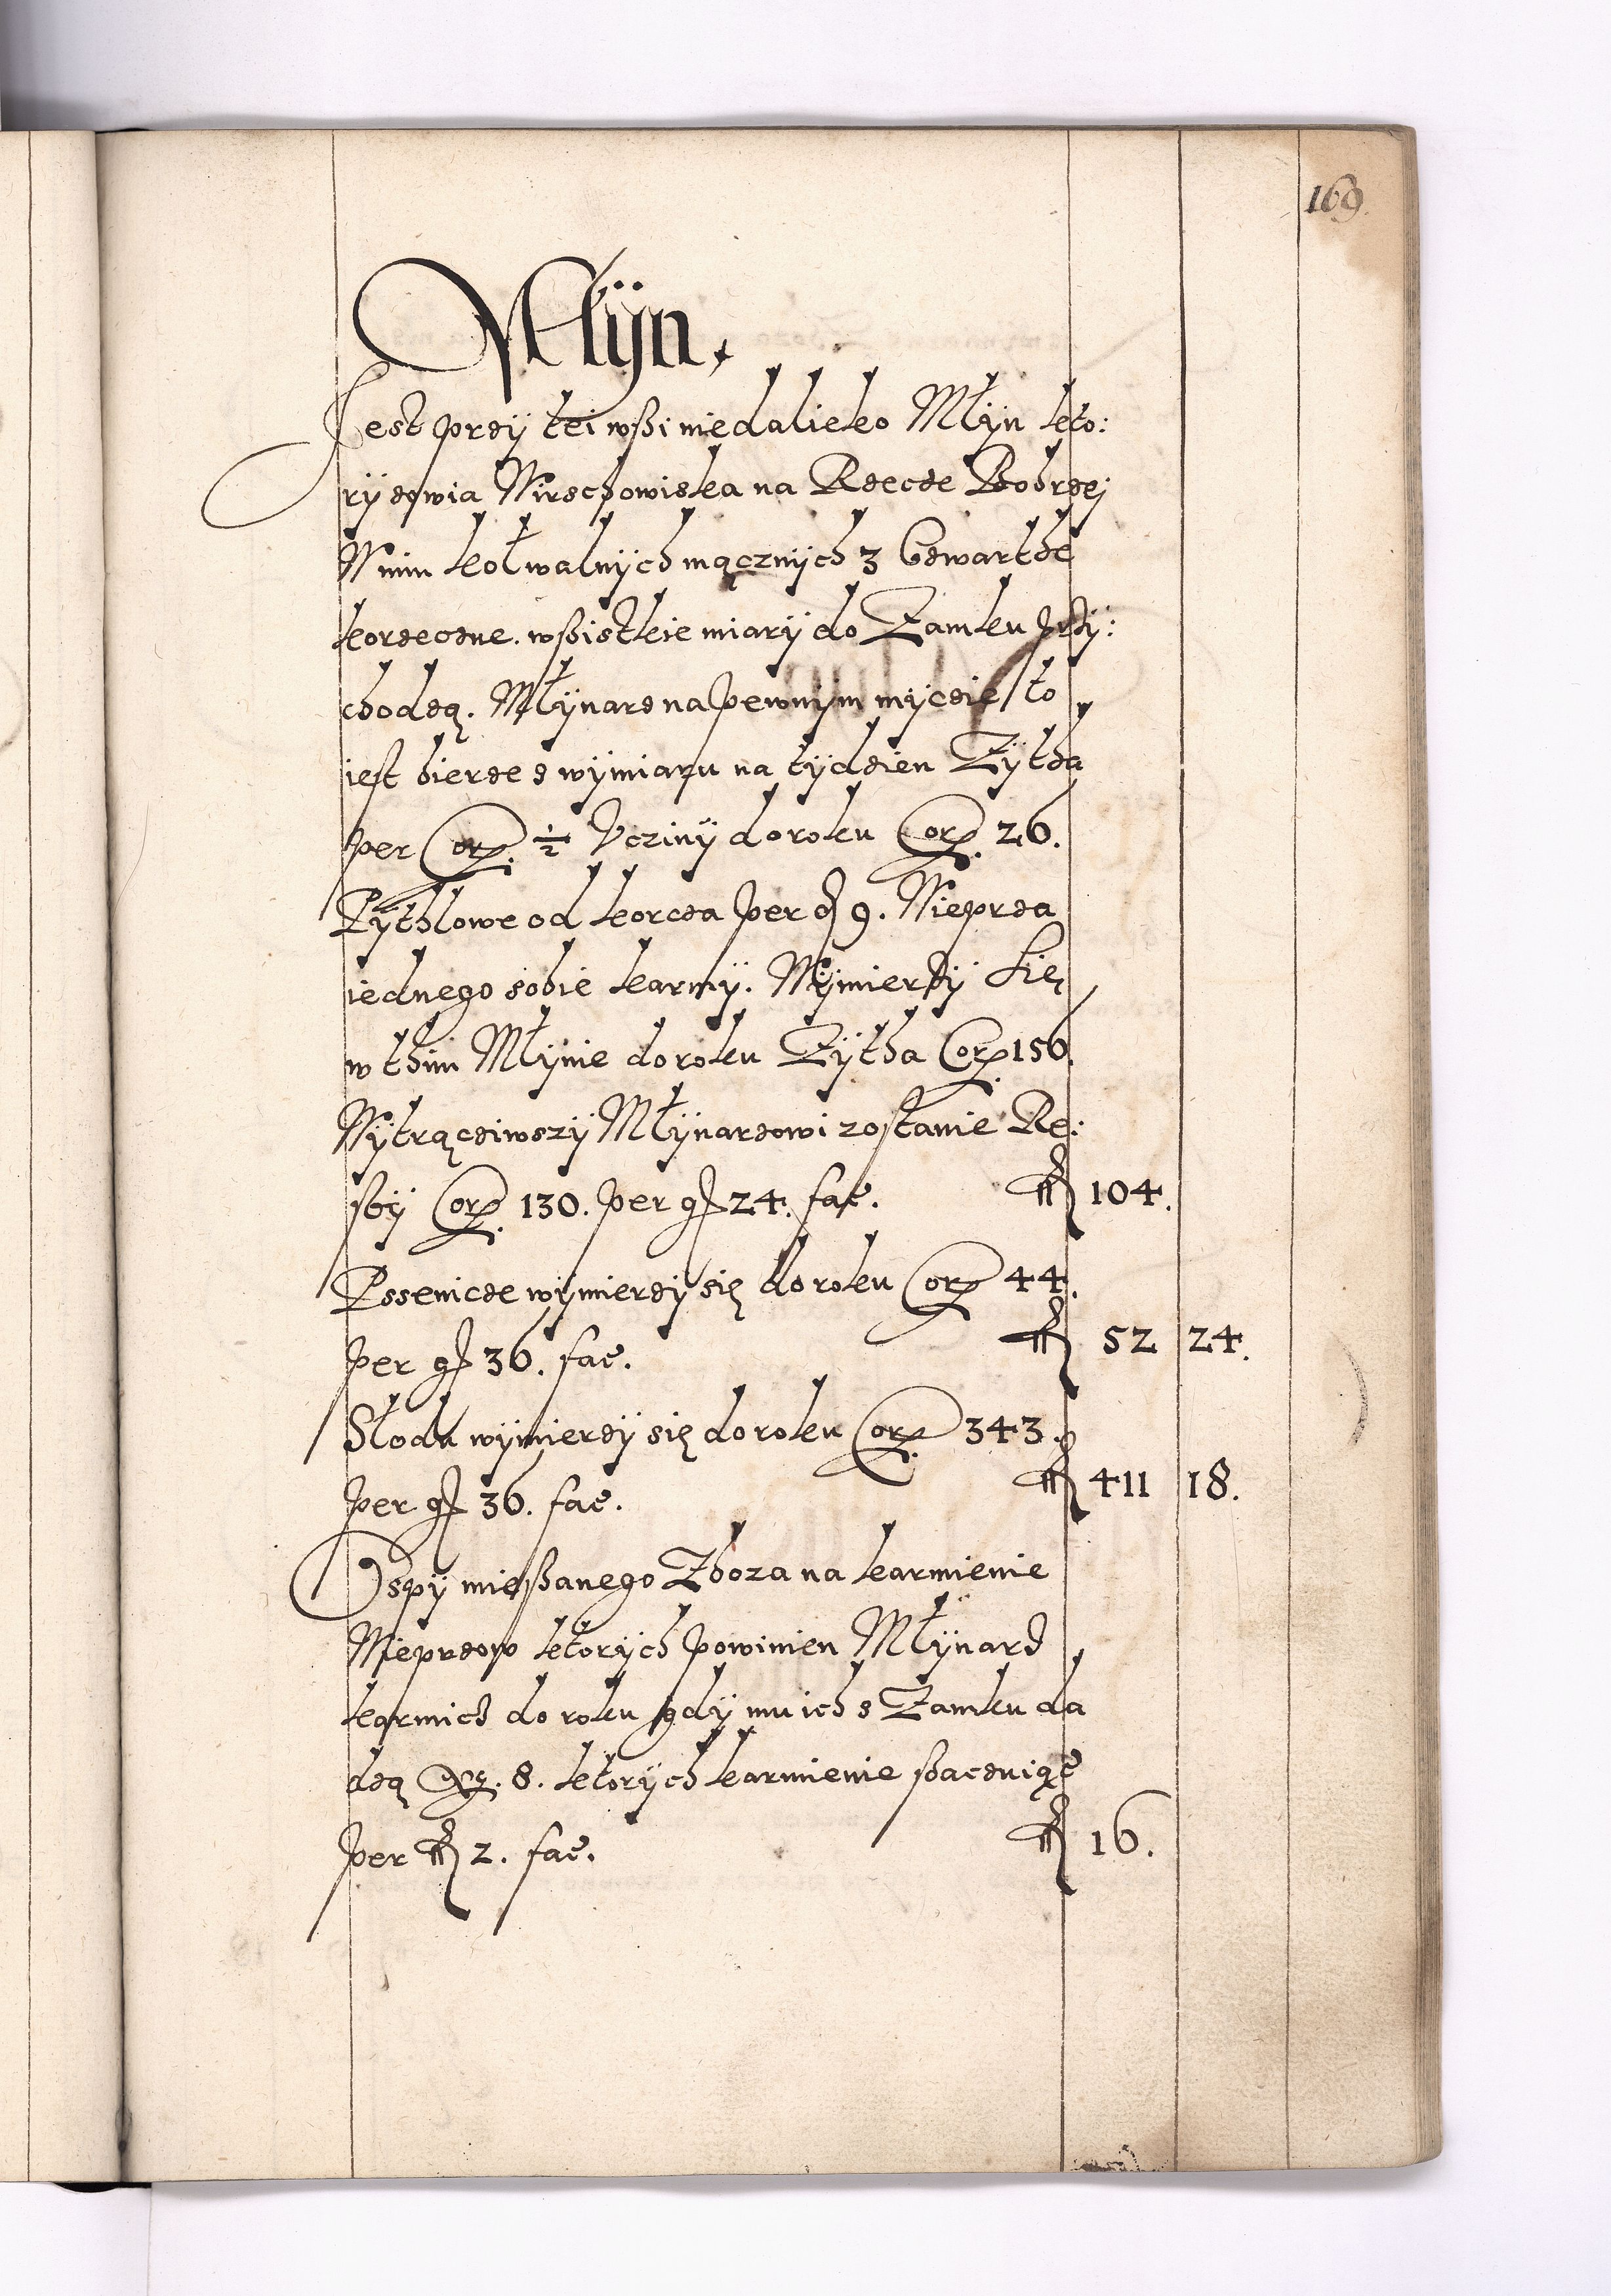 169.
Młyn.
Jest przy tei wßi niedalieko Młyn kto:
ry zowia Wirzchowiska na Rzecze Bobrzej
W nim kol walnych mącznych 3 Czwarthe
korzeczne. wßistkie miary do Zamku przy:
chodzą. Młynarz na pewnym myczie / to
iest bierze z wymiaru na tydzien Zytha
per Cor. ½ Vcziny do roku Cor. 26.
Pythlowe od korcza per d 9. Wieprza
iednego sobie karmy. Wymierzy Się
w thim Młynie do roku Zytha Cor 156.
Wytrącziwszy Młynarzowi zostanie Re:
szy Cor. 130. per gr 24. fac. fl 104.
Pssenicze wymierzy się do roku Cor 44.
per gr 36. fac. fl 52 24.
Słodu wymierzy się do roku Cor. 343.
per gr 36. fac. fl 411 18.
Ospy mießanego Zboza na karmienie
Wieprzow ktorych powinien Młynarz
karmicz do roku gdy mu ich z Zamku da
dzą Nr. 8. ktorych karmienie ßacuiąc
per fl 2. fac. fl 16.